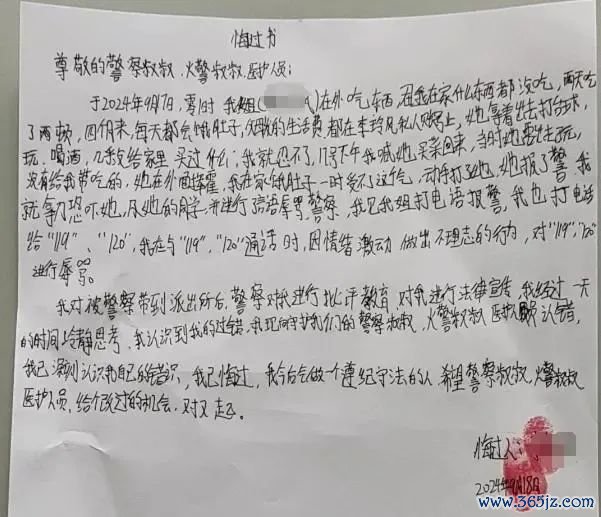 悔过书
尊敬的警察叔叔、火警叔叔、医护人员:
于2024年9月17日,零时 我姐( )在外吃东西,因我在家什么东西都没吃,两天吃
了两顿,四个月来,每天都会饿肚子,父母的生活费都在李玲凤私人账号上,她拿着出去打台球,
玩、喝酒,几乎没给家里买过什么;我就忍了,17号下午我喊她买菜回来,当时她要出去玩,
没有给我带吃的,她在外面挥霍,我在家饿肚子一时受不了这个气,动手打了她,她报了警,我
就拿刀恐吓她,及她的朋友,并进行言语辱骂警察,我见我姐打电话报警,我也打电话
给"119"、"120",我在与"119","120"通话时,因情绪激动 做出不理志的行为,对"119","120"
进行辱骂。
我对被警察带到派出所后,警察对我进行批评教育,对我进行法律宣传,我经过一天
的时间冷静思考、我认识到我的过错,我现向守护我们的警察叔叔、火警叔叔 医护人员认错,
我已深刻认识我自己的错识,我已悔过,我今后会做一个遵纪守法的人 希望警察叔叔,火警叔叔
医护人员,给个改过的机会.对不起。
悔过人:
2024年9月18日
www.365jz.com